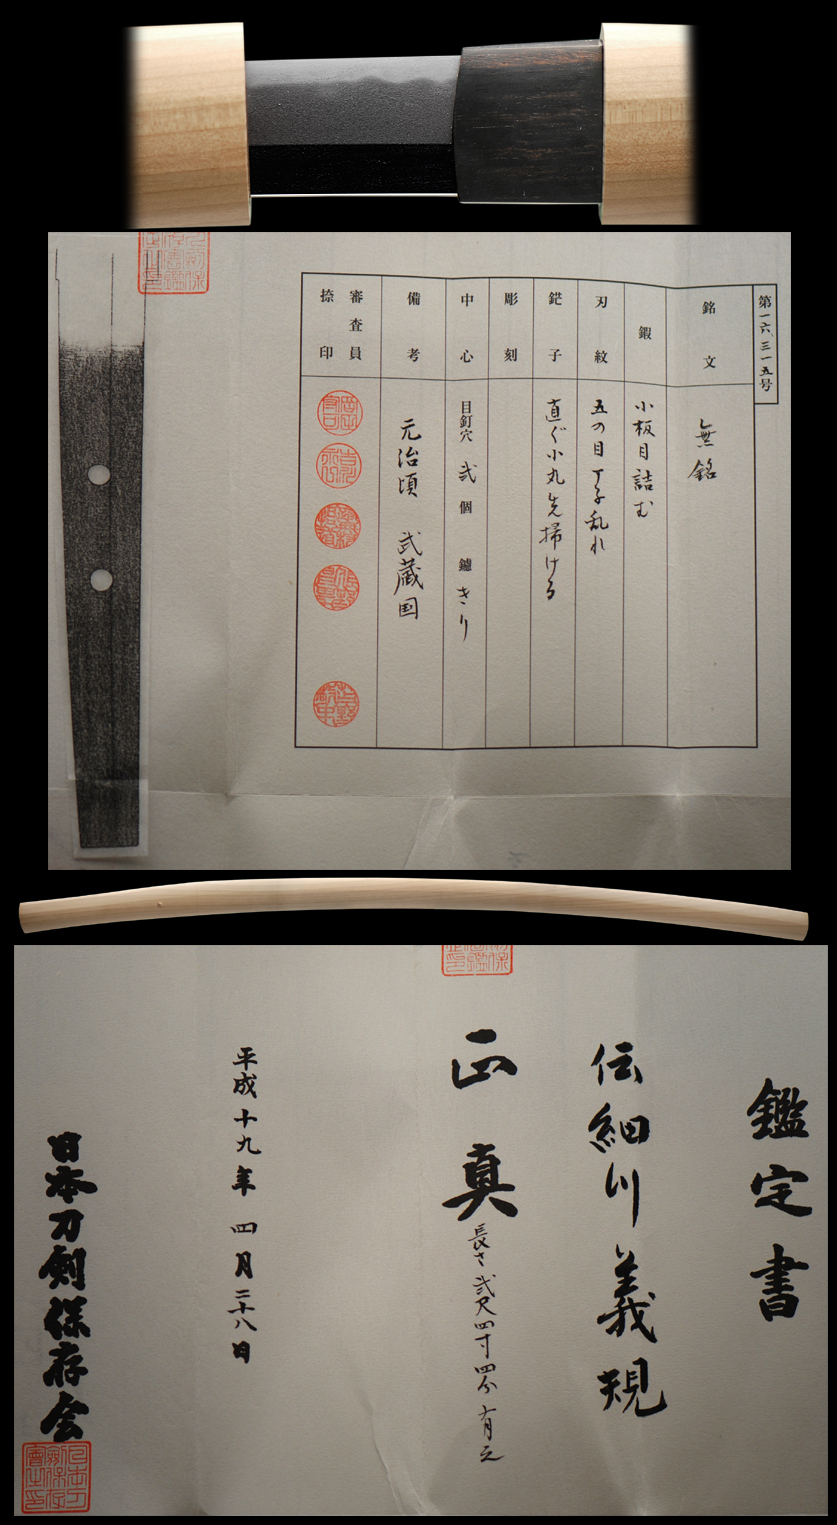 第一六、三一五号
銘文
無銘
鍜
小板目詰む
刃紋
五の目丁子乱れ
鋩子
直ぐ小丸先掃ける
彫刻
中心
目釘穴 弐 個 鑢 きり
備考
元治頃 武蔵国
審査員
捺印
鑑定書
伝細川義規
正真
長さ弐尺四寸四分有之
平成十九年四月二十八日
日本刀剣保存会